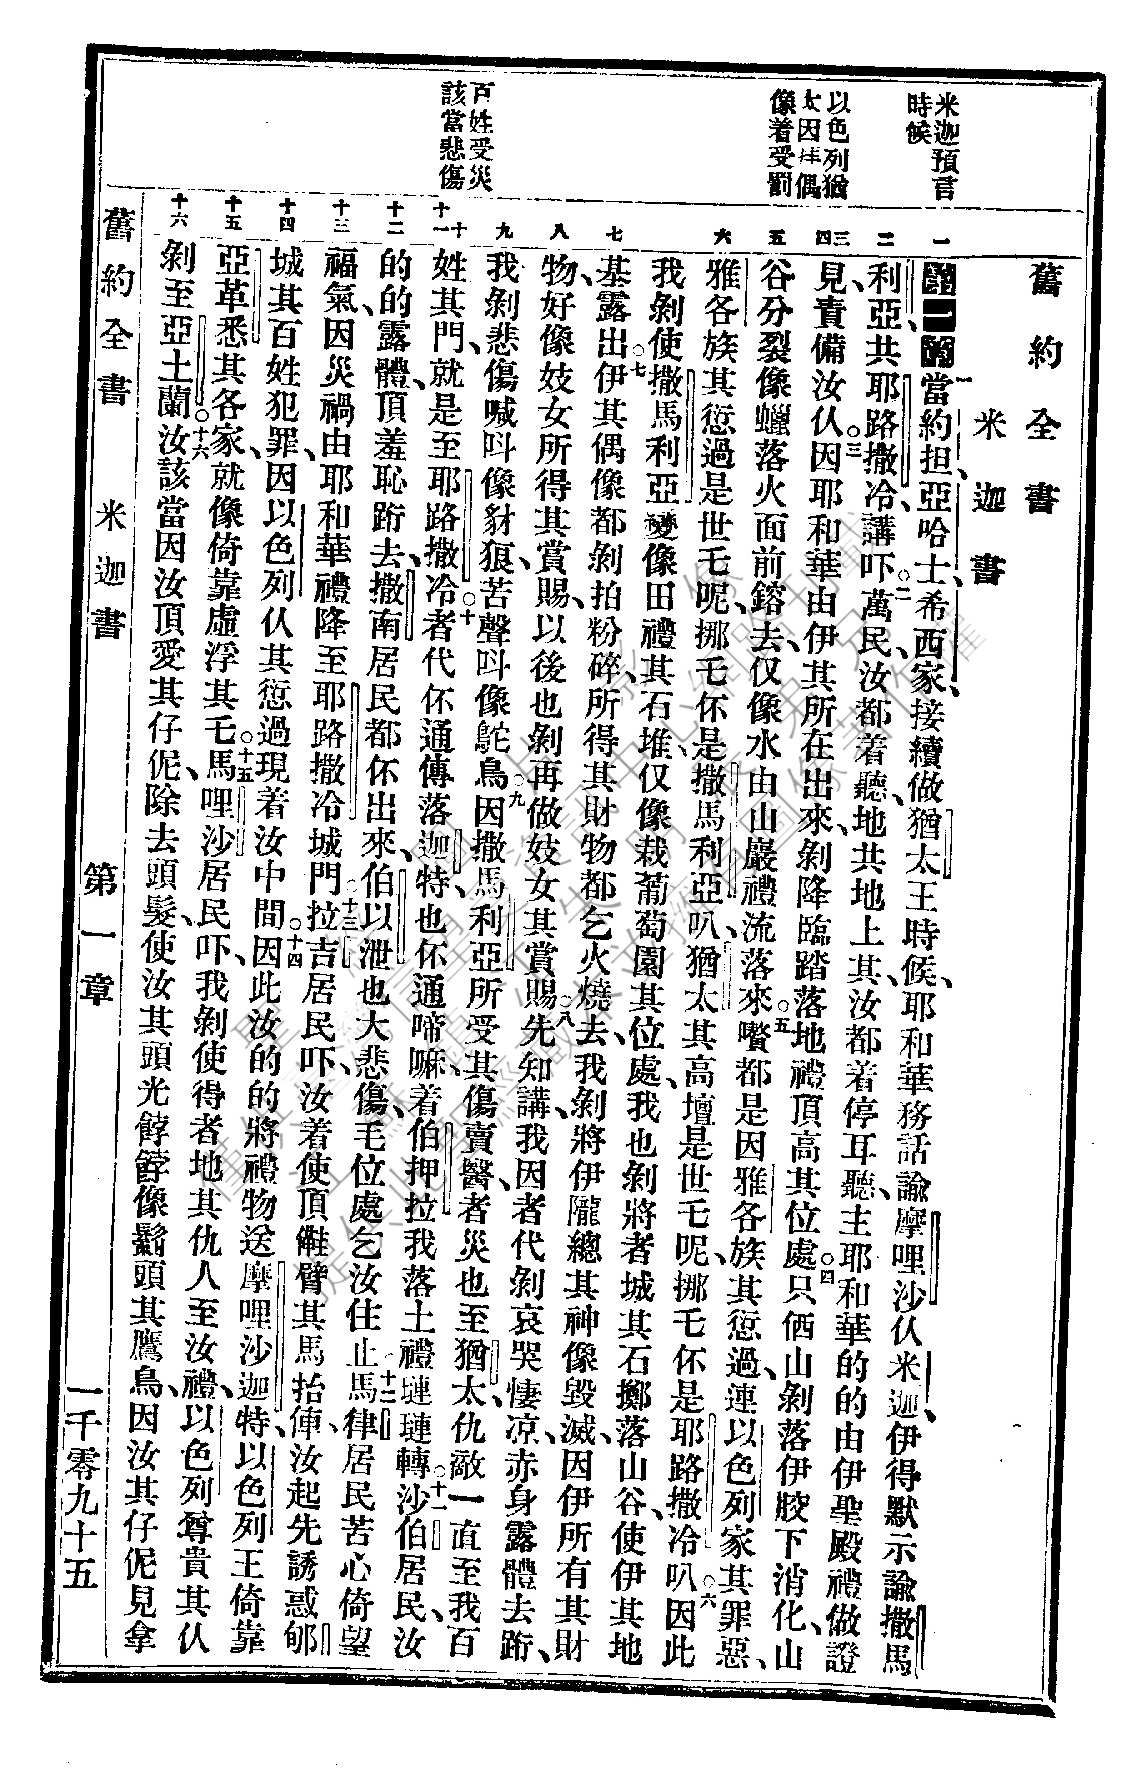 舊約全書
米迦書
米迦預言
時候
以色列猶
太因拜偶
像着受罰
百姓受災
該當悲傷
一
二
三
四
五
六
七
八
九
十
十一
十二
十三
十四
十五
十六
第一章當約担、亞哈士、希西家、接續做猶太王時候、耶和華務話諭摩哩沙仈米迦、伊得默示諭撒馬
利亞、共耶路撒冷、講吓、○二萬民汝都着聽、地共地上其汝都着停耳聽、主耶和華的的由伊聖殿禮做證
見、責備汝仈、○三因耶和華由伊其所在出來、剝降臨踏落地禮頂高其位處、○四只仴山剝落伊骹下消化、山
谷分裂像蠟落火面前鎔去、仅像水由山巖禮流落來、○五嚽都是因雅各族其愆過、連以色列家其罪惡、
雅各族其愆過是世乇呢、挪乇伓是撒馬利亞叭、猶太其高壇是世乇呢、挪乇伓是耶路撒冷叭、○六因此
我剝使撒馬利亞變像田禮其石堆、仅像栽葡萄園其位處、我也剝將者城其石擲落山谷、使伊其地
基露出、○七伊其偶像都剝拍粉碎、所得其財物都乞火燒去、我剝將伊隴總其神像毀滅、因伊所有其財
物好像妓女所得其賞賜、以後也剝再做妓女其賞賜、○八先知講、我因者代剝哀哭悽凉、赤身露體去跡、
我剝悲傷喊呌像豺狼、苦聲呌像鴕鳥、○九因撒馬利亞所受其傷賣醫、者災也至猶太、仇敵一直至我百
姓其門、就是至耶路撒冷、○十者代伓通傳落迦特、也伓通啼嘛、着伯押拉我落土禮璉璉轉、○十一沙伯居民、汝
的的露體頂羞恥跡去、撒南居民都伓出來、伯以泄也大悲傷、乇位處乞汝住止、○十二馬律居民苦心倚望
福氣、因災禍由耶和華禮降至耶路撒冷城門、○十三拉吉居民吓、汝着使頂䧹臂其馬抬俥、汝起先誘惑郇
城其百姓犯罪、因以色列仈其愆過現着汝中間、○十四因此汝的的將禮物送摩哩沙迦特、以色列王倚靠
亞革悉其各家、就像倚靠虛浮其乇、○十五馬哩沙居民吓、我剝使得者地其仇人至汝禮、以色列尊貴其仈
剝至亞土蘭、○十六汝該當因汝頂愛其仔伲、除去頭髮、使汝其頭光餑餑像鬎頭其鷹鳥、因汝其仔伲見拿
舊約全書
米迦書
第一章
一千零九十五